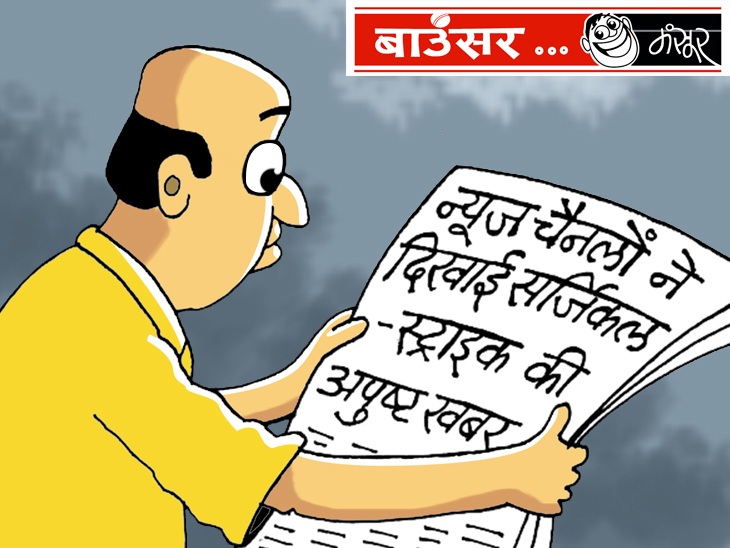 बाउंसर ...
मंसूर
न्यूज चैनलों ने
दिखाई सर्जिकल
-स्ट्राइक की
अपुष्ट खबर